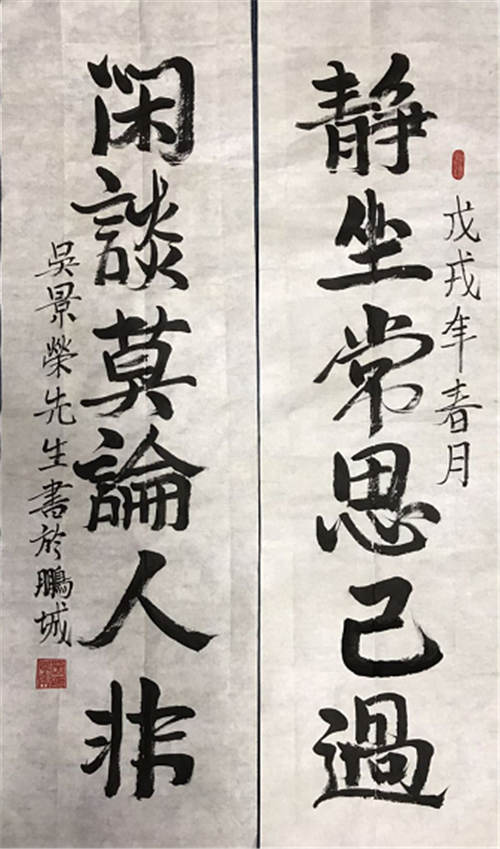 戊戌年春月
静坐常思己過
闲談莫論人非
吳景榮先生書於鵬城